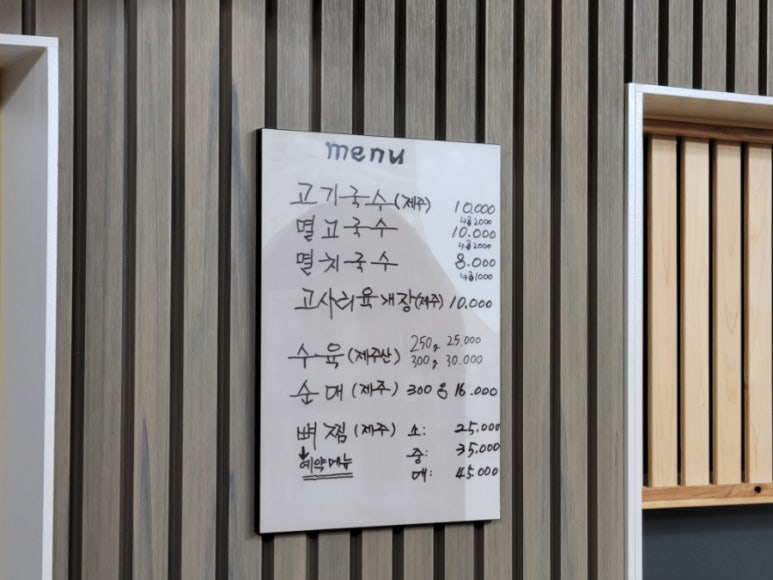 menu
고기국수(제주) 10.000
사공2000
멸고국수 10.000
사공2000
멸치국수 8.000
사공1000
고사리육개장(제주) 10.000
수육(제주산) 250g 25.000
300g 30.000
순대(제주) 300g 16.000
뼈찜(제주) 소: 25.000
중: 35.000
예약메뉴
대: 45.000